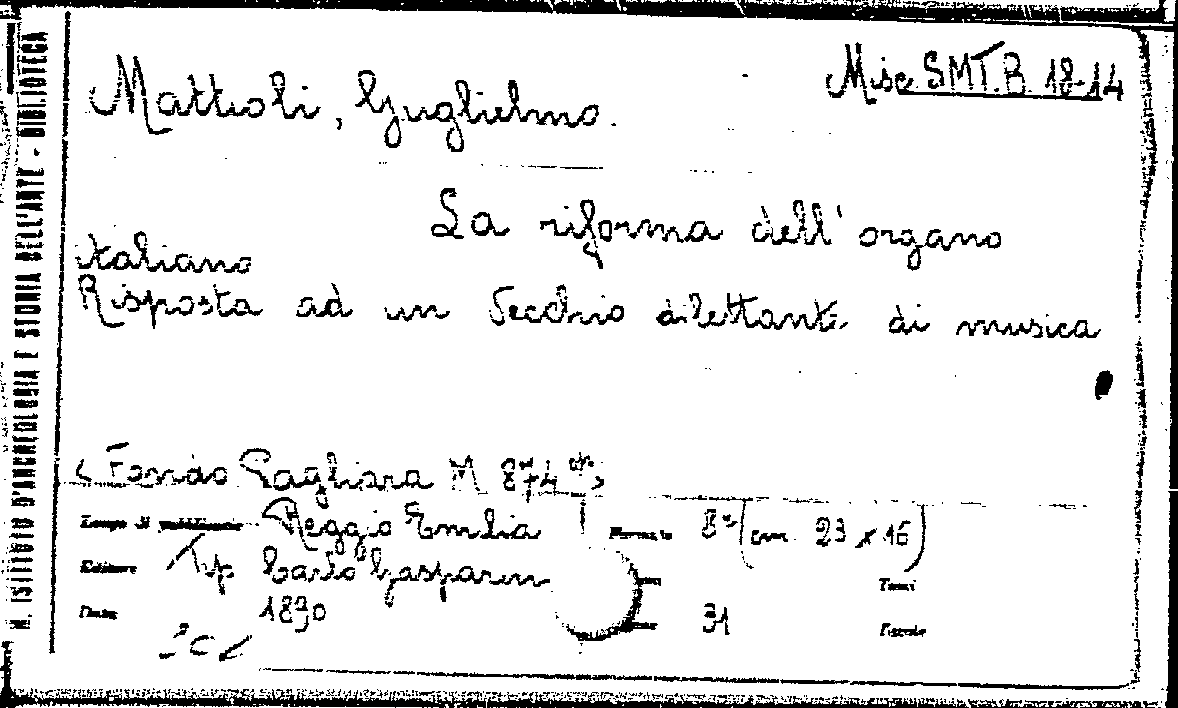 R. ISTITUTO D'ARCHEOLOGIA E STORIA DELL'ARTE - BIBLIOTECA
Misc SMT.B 18-14
Mattioli, Guglielmo.
La riforma dell'organo
italiano
Risposta ad un Vecchio dilettante di musica
(Fondo Pagliara M 874
Luogo di pubblicazione Reggio Emilia Formato 8° (cm 23 x 16)
Editore Tip Carlo Gasparini Tomi
Data 1890 31 Fascicolo